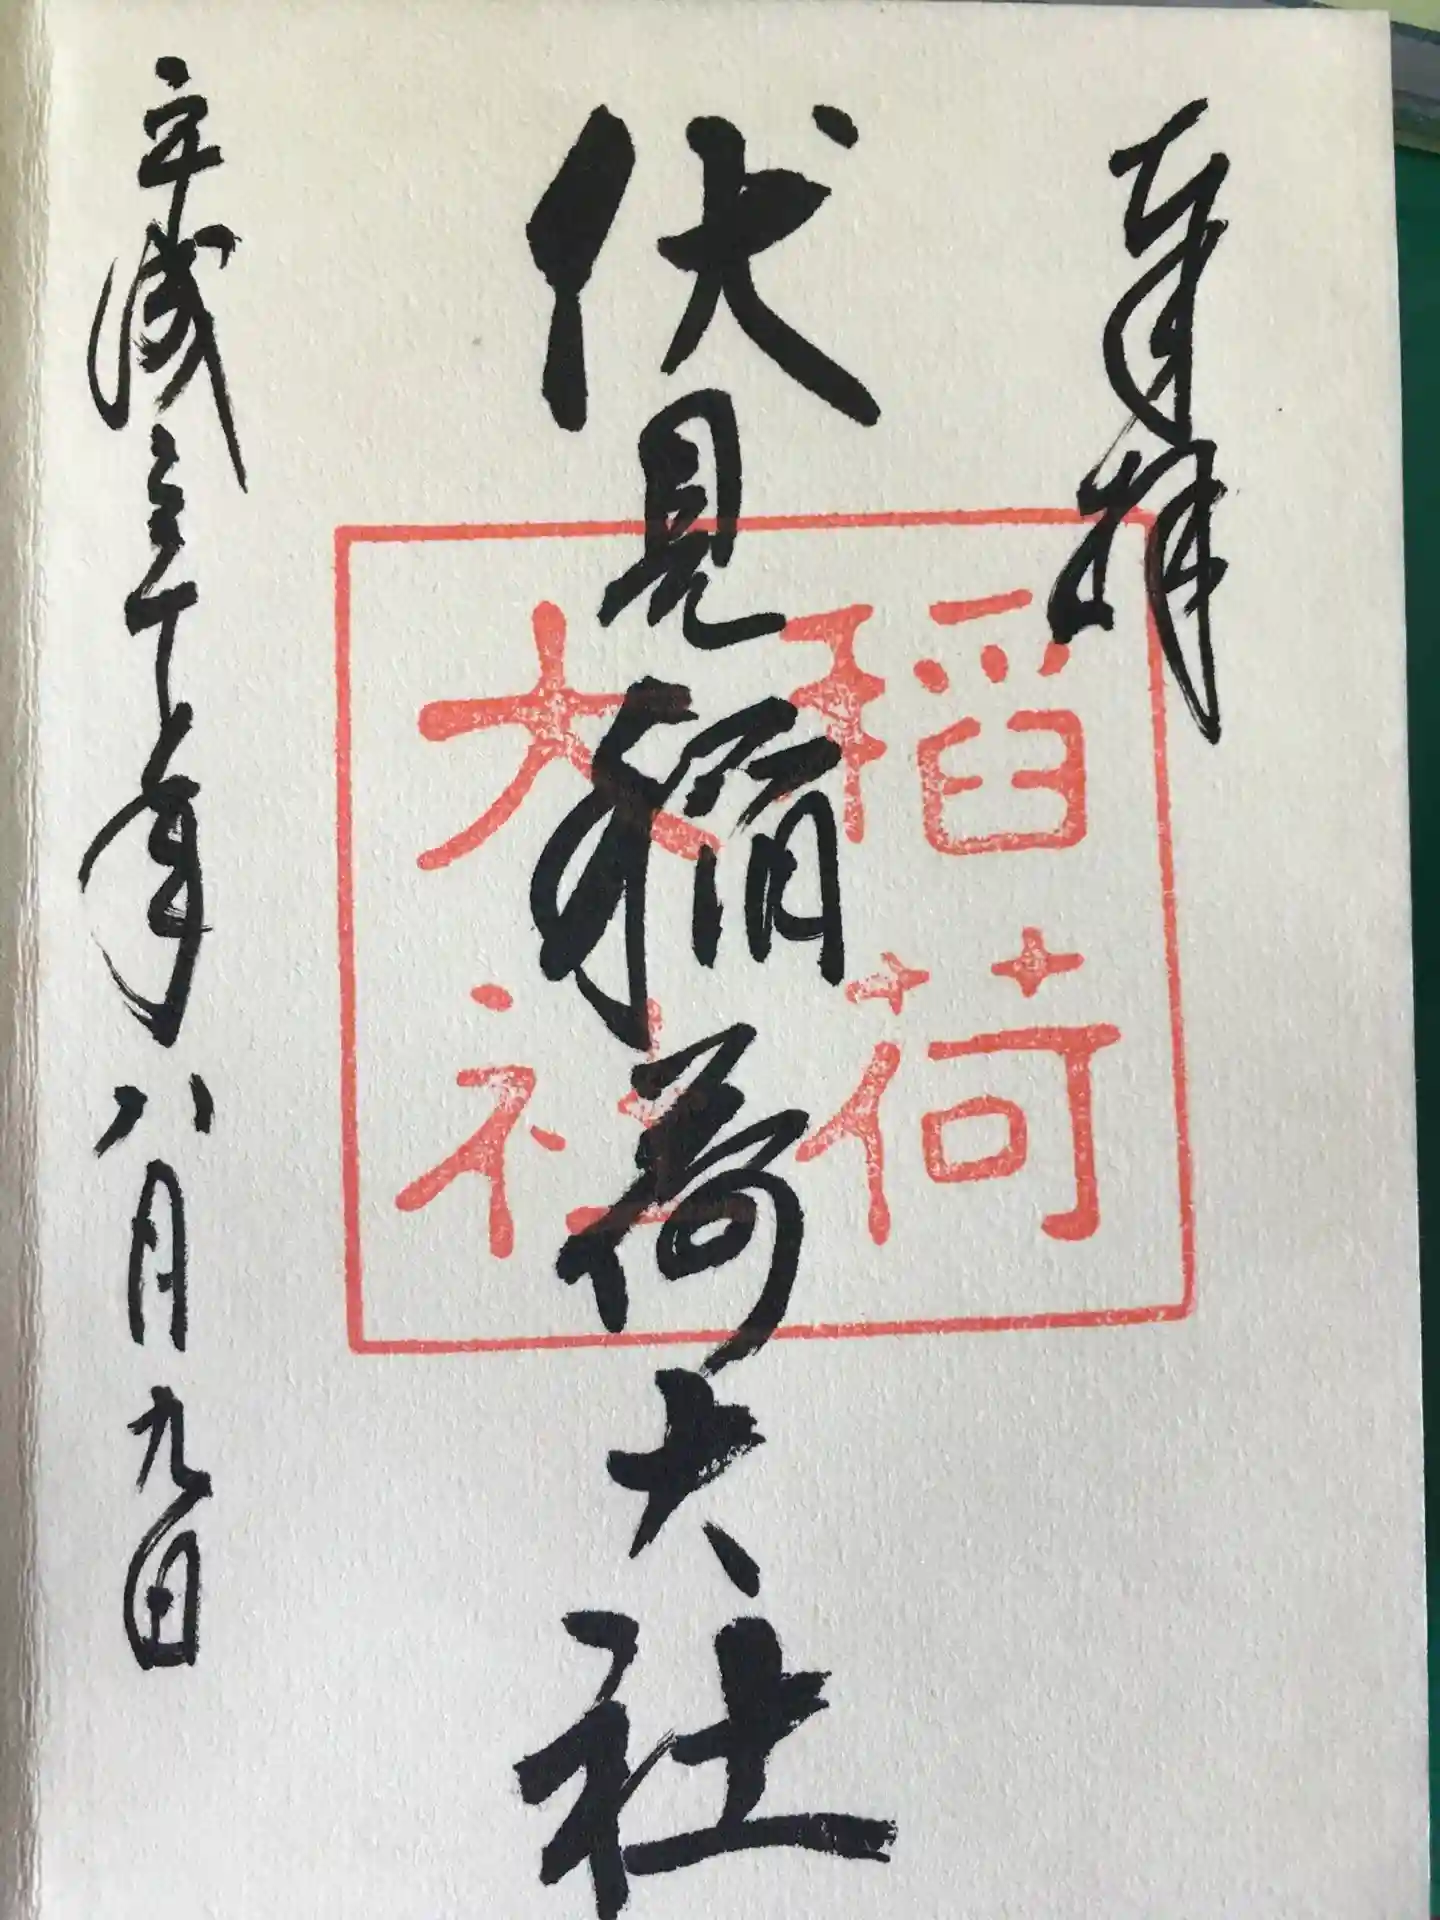 奉拝
伏見稲荷大社
稲荷
大社
平成三十年八月九日